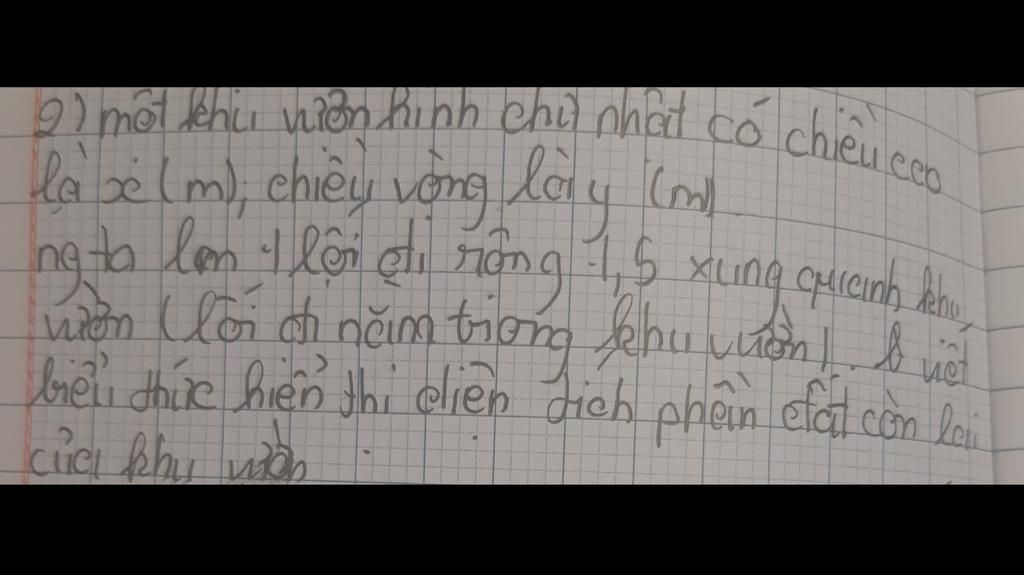 2) một khu vườn hình chữ nhật có chiều cao
là x (m), chiều vòng là y (m)
ng ta làm 1 lối đi rộng 1,5 xung quanh khu
vườn (lối đi nằm trong khu vườn). viết
biểu thức hiển thị diện dích phần đất còn lại
của khu vườn.